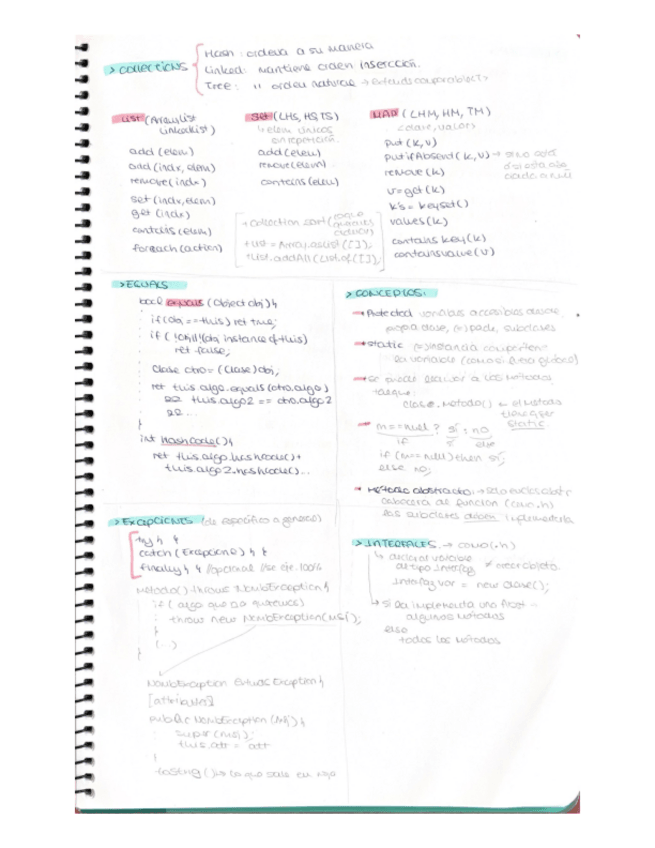 > COLLECTIONS
Hash: ordena a su manera
Linked: mantiene orden inserción.
Tree: " orden natural → extends comparable<T>
LIST (ArrayList
LinkedList)
add (elem)
add (indx, elem)
remove (indx)
set (indx, elem)
get (indx)
contains (elem)
foreach (action)
SET (LHS, HS, TS)
↳ elem únicos
no repetición.
add (elem)
remove (elem)
contains (elem)
+ Collection.sort (
+ list = Array.asList ([]);
+ list.addAll (List.of ([]);
MAP (LHM, HM, TM)
<clave, valor>
put (k, v)
putifAbsend (k, v) → si no está
o si está aso
ciada a null
remove (k)
v = get (k)
k's = keyset ()
values (k)
contains key (k)
containsvalue (v)
> EQUALS
bool equals (Object obj) {
if (obj == this) ret true;
if (! (obj instance of this)
ret false;
Clase otro = (Clase) obj;
ret this.algo.equals (otro.algo)
&& this.algo2 == otro.algo2
&& ...
}
int hashCode () {
ret this.algo.hashcode () +
this.algo2.hashcode () ...
> CONCEPTOS:
→ Protected variables accesibles desde
propia clase, (=) pack, subclases
→ static (=) instancia comparten
la variable (como si fuera global)
→ Se puede llamar a los métodos
clase.metodo () ← el metodo
tiene q ser
static.
→ m == null ? sí : no
if sí else
if (m == null) then sí;
else no;
→ Método abstracto: → solo en clas abstc
cabecera de función (como .h)
las subclases deben implementarla
> Excepciones (de específico a general)
try { }
catch (Excepcione) { }
finally { } //opcional //se eje. 100%
metodo () throws NombException {
if ( algo que no queremos)
throws new NombException (msj);
}
(...)
}
NombException extends Exception {
[atributos]
public NombException (msj) {
super (msj);
this.att = att
}
toString () → lo que sale en rojo
> INTERFACES → como (.h)
↳ declarar variable
de tipo interfaz ≠ crear objeto.
Interfaz var = new clase ();
↳ si la implementa una abst →
algunos métodos
else
todos los métodos